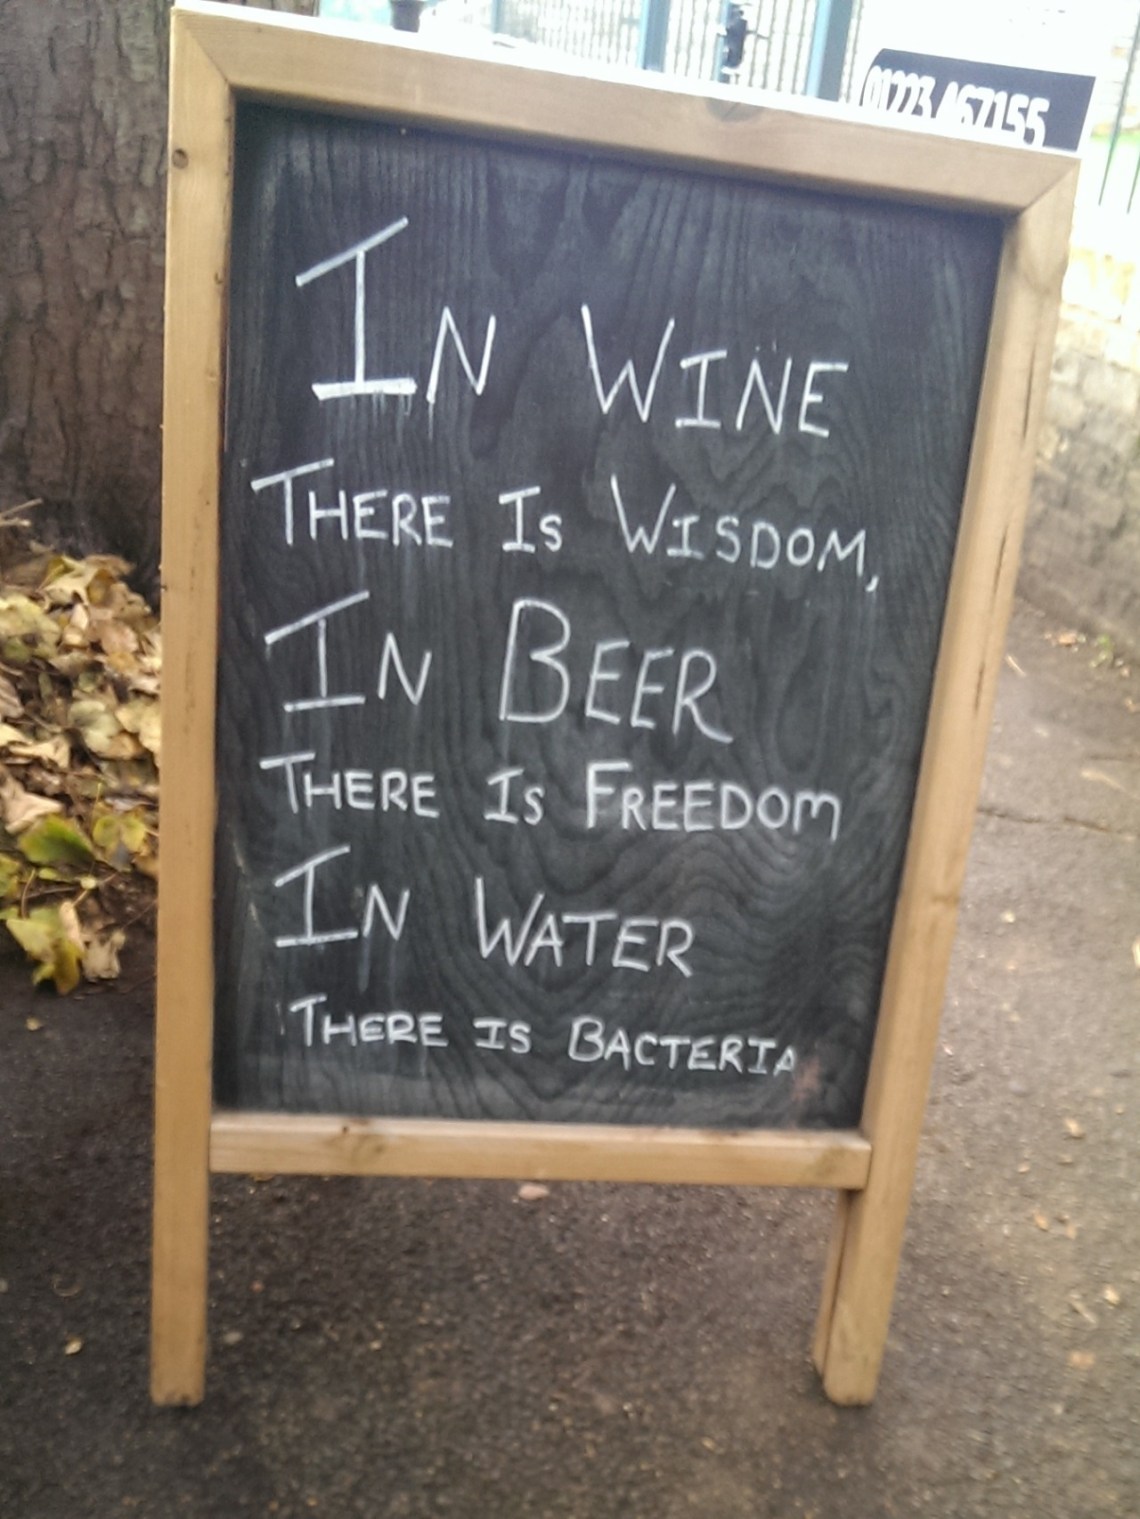 01223 467155
In Wine
There Is Wisdom,
In Beer
There Is Freedom
In Water
There is Bacteria